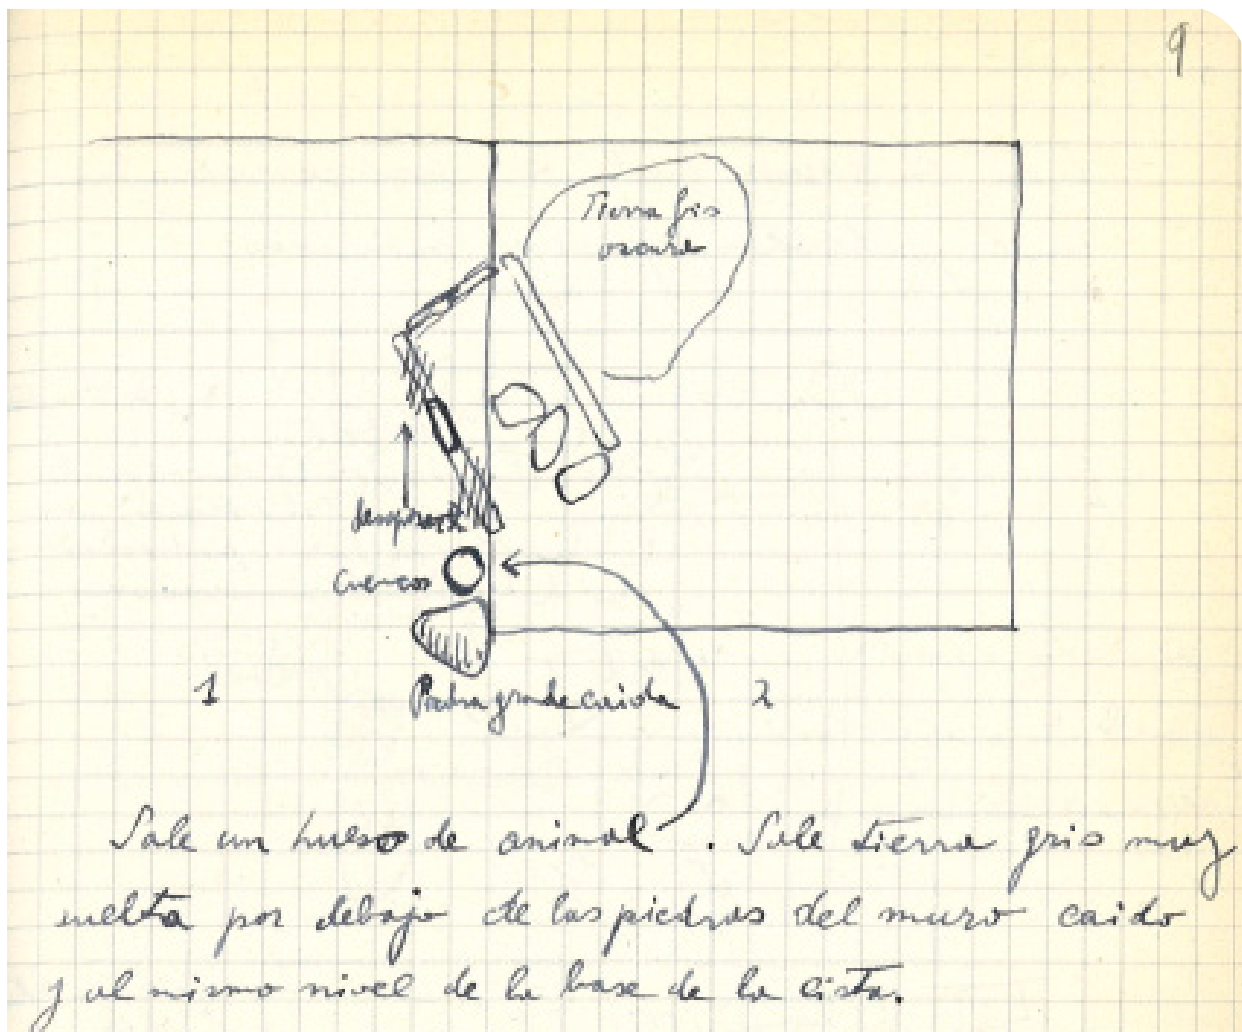 9
Tierra gris
oscura
Cuencos
1
Piedra grande caida
2
Sale un hueso de animal . Sale tierra gris muy
suelta por debajo de las piedras del muro caido
y al mismo nivel de la base de la cista.